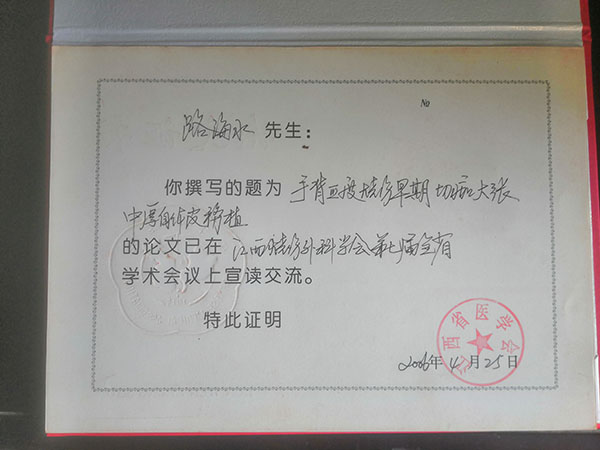 №
路海水 先生：
你撰写的题为 手背Ⅲ度烧伤早期切痂大张
中厚自体皮移植
的论文已在 江西烧伤外科学会第七届全省
学术会议上宣读交流。
特此证明
江西省医学会
2006年4月25日